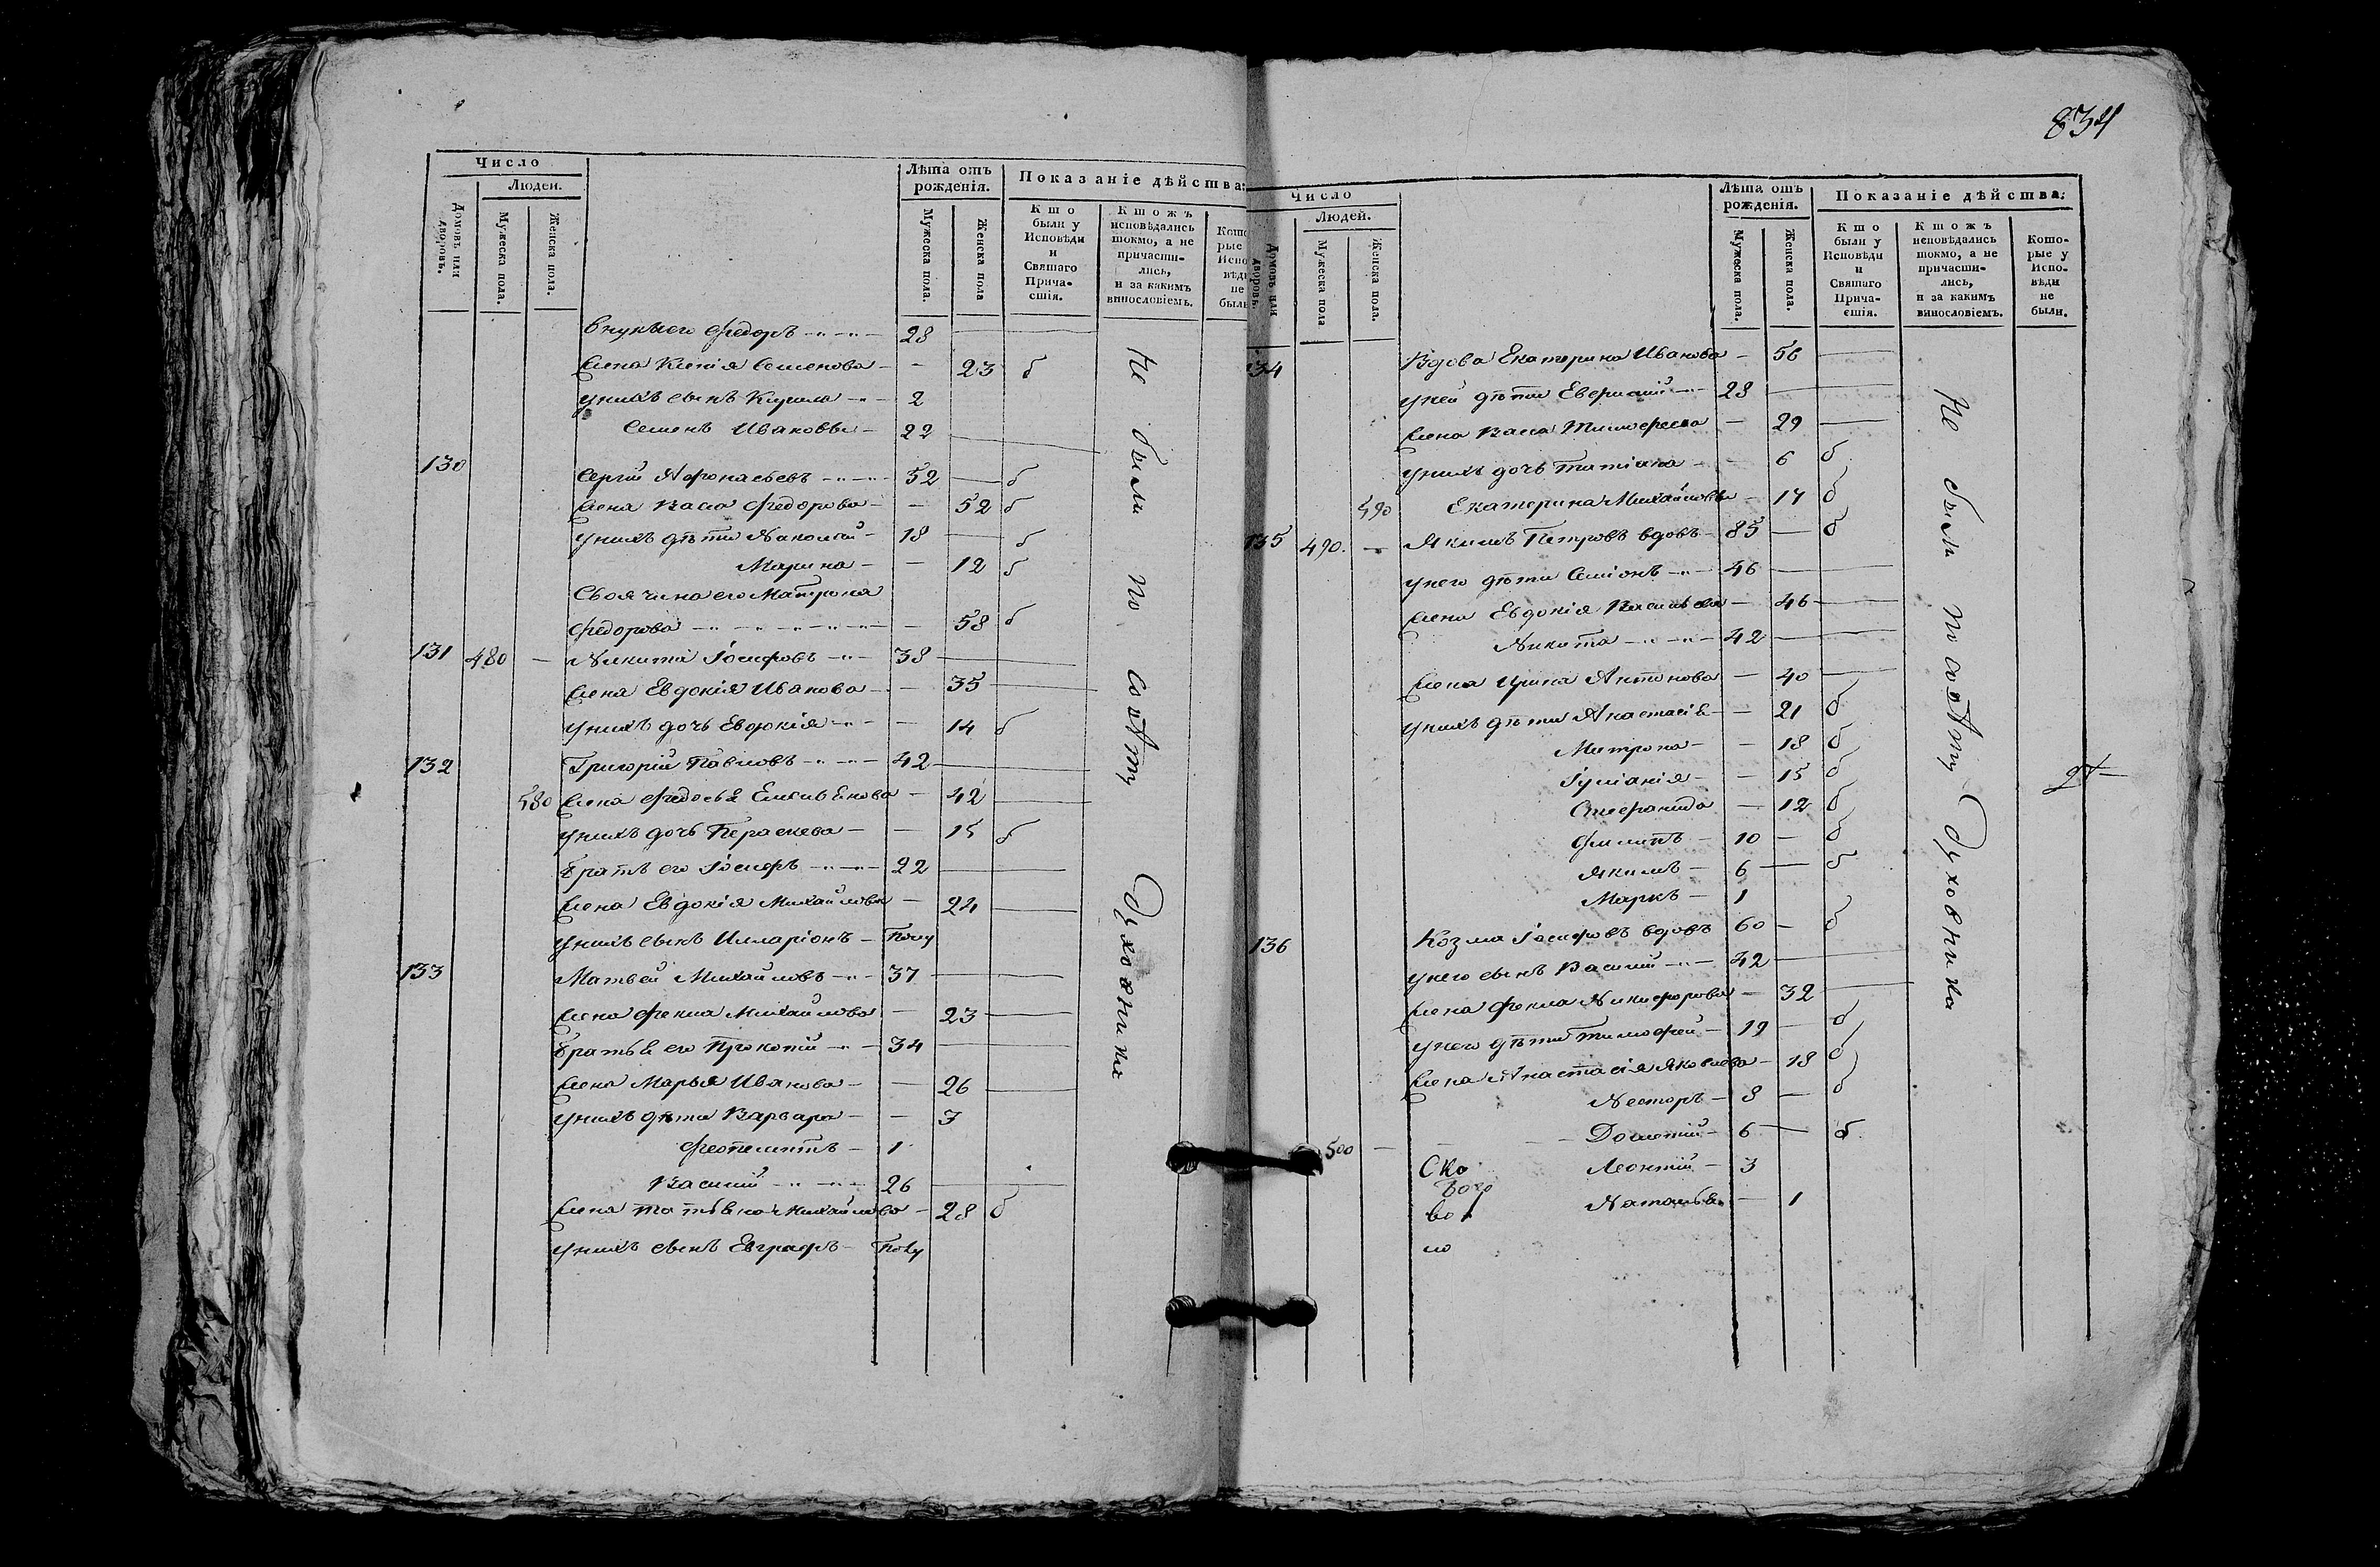 834
Число
Людей.
Домовъ или дворовъ.
Мужеска пола.
Женска пола.
Лѣта отъ рожденія.
Мужеска пола.
Женска пола
Показаніе дѣйства:
Кто были у Исповѣди и Святаго Причастія.
Ктожъ исповѣдались токмо, а не причастились, и за какимъ винословіемъ.
Кото
рые
Испо
вѣди
не
были
внукъ его Федоръ 28
жена Ксенія Семенова 23 б
у нихъ сынъ Кирила 2
Семенъ Ивановъ 22
130 Сергій Афонасьевъ 52 б
жена Васа Федорова 52 б
у нихъ дѣти 18 б
Марина 12 б
Своячина его Матрона
Федорова 58 б
131 480 Никита Іосифовъ 38
жена Евдокія Иванова 35
у нихъ дочь Евдокія 14 б
132 Григорій Павловъ 42
580 жена Федосья 42
у нихъ дочь Параскева 15 б
братъ его Іосифъ 22
жена Евдокія Михайлова 24
у нихъ сынъ Илларіонъ
133 Матвей Михайловъ 37
жена Фекла Михайлова 23
братья его Прокопій 34
жена Марья Иванова 26
у нихъ дѣти Варвара 3
1
Василій 26
жена Татьяна Михайлова 28 б
у нихъ сынъ Евграфъ
Не были по совѣту Духовника
Число
Людей.
Домовъ или дворовъ.
Мужеска пола
Женска пола.
Лѣта отъ рожденія.
Мужеска пола.
Женска пола.
Показаніе дѣйства:
Кто были у Исповѣди и Святаго Причастія.
Ктожъ исповѣдались токмо, а не причастились, и за какимъ винословіемъ.
Которые у Исповѣди не были.
134 Вдова Екатерина Иванова 56
у ней дѣти 28
жена Васа Тимофеева 29
у нихъ дочь Татіана 6 б
590 Екатерина Михайлова 17 б
135 490. Якимъ Петровъ вдовъ 85 б
у него дѣти Симіонъ 46
жена Евдокія Васильева 46
Никита 42
жена Ирина Антонова 40
у нихъ дѣти Анастасія 21 б
Матрона 18 б
Іуліанія 15 б
Стефанида 12 б
Филипъ 10 б
Якимъ 6 б
Маркъ 1
136 Козма Іосифовъ вдовъ 60 б
у него сынъ Василій 42
жена Фекла Никифорова 32
у него дѣти Тимофей 19 б
жена Анастасія Яковлева 18 б
Несторъ 8 б
Дометій 6 б
500 Леонтій 3
Наталья 1
Не были по совѣту Духовника